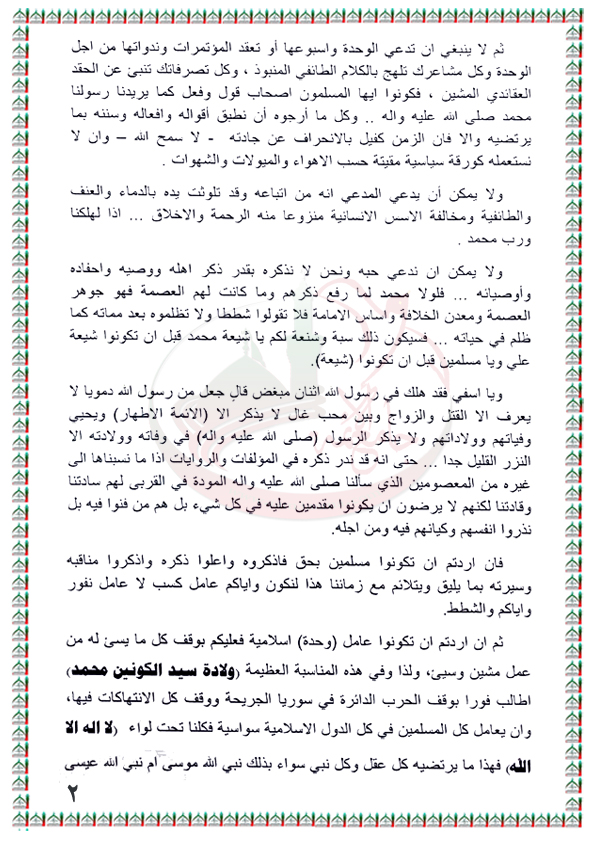 ثم لا ينبغي ان تدعي الوحدة واسبوعها أو تعقد المؤتمرات وندواتها من اجل
الوحدة وكل مشاعرك تلهج بالكلام الطائفي المنبوذ ، وكل تصرفاتك تنبئ عن الحقد
العقائدي المشين ، فكونوا ايها المسلمون اصحاب قول وفعل كما يريدنا رسولنا
محمد صلى الله عليه واله .. وكل ما أرجوه أن نطبق أقواله وافعاله وسننه بما
يرتضيه والا فان الزمن كفيل بالانحراف عن جادته - لا سمح الله – وان لا
نستعمله كورقة سياسية مقيتة حسب الاهواء والميولات والشهوات .
ولا يمكن أن يدعي المدعي انه من اتباعه وقد تلوثت يده بالدماء والعنف
والطائفية ومخالفة الاسس الانسانية منزوعا منه الرحمة والاخلاق ... اذا لهلكنا
ورب محمد .
ولا يمكن ان ندعي حبه ونحن لا نذكره بقدر ذكر اهله ووصيه واحفاده
وأوصيائه ... فلولا محمد لما رفع ذكرهم وما كانت لهم العصمة فهو جوهر
العصمة ومعدن الخلافة واساس الامامة فلا تقولوا شططا ولا تظلموه بعد مماته كما
ظلم في حياته ... فسيكون ذلك سبة وشنعة لكم يا شيعة محمد قبل ان تكونوا شيعة
علي ويا مسلمين قبل ان تكونوا (شيعة).
ويا اسفي فقد هلك في رسول الله اثنان مبغض قالٍ جعل من رسول الله دمويا لا
يعرف الا القتل والزواج وبين محب غال لا يذكر الا (الائمة الاطهار) ويحيي
وفياتهم وولاداتهم ولا يذكر الرسول (صلى الله عليه واله) في وفاته وولادته الا
النزر القليل جدا ... حتى انه قد ندر ذكره في المؤلفات والروايات اذا ما نسبناها الى
غيره من المعصومين الذي سألنا صلى الله عليه واله المودة في القربى لهم سادتنا
وقادتنا لكنهم لا يرضون ان يكونوا مقدمين عليه في كل شيء بل هم من فنوا فيه بل
نذروا انفسهم وكيانهم فيه ومن اجله.
فان اردتم ان تكونوا مسلمين بحق فاذكروه واعلوا ذكره واذكروا مناقبه
وسيرته بما يليق ويتلائم مع زماننا هذا لنكون واياكم عامل كسب لا عامل نفور
واياكم والشطط.
ثم ان اردتم ان تكونوا عامل (وحدة) اسلامية فعليكم بوقف كل ما يسئ له من
عمل مشين وسيئ، ولذا وفي هذه المناسبة العظيمة (ولادة سيد الكونين محمد)
اطالب فورا بوقف الحرب الدائرة في سوريا الجريحة ووقف كل الانتهاكات فيها،
وان يعامل كل المسلمين في كل الدول الاسلامية سواسية فكلنا تحت لواء (لا اله الا
الله) فهذا ما يرتضيه كل عقل وكل نبي سواء بذلك نبي الله موسى ام نبي الله عيسى
٢